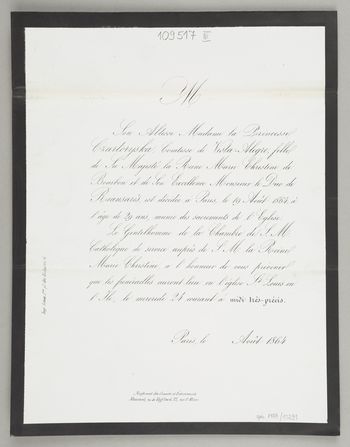 109517 III
M
Son Altesse Madame la Princesse
Czartoryska Comtesse de Vista-Alegre, fille
de Sa Majesté la Reine Marie Christine de
Bourbon et de Son Excellence Monsieur le Duc de
Rianzarès est décédée à Paris, le 19 Août 1864 à
l'âge de 29 ans, munie des sacrements de l'Eglise.
Le Gentilhomme de la Chambre de S. M.
Catholique de service auprès de S. M. la Reine
Marie Christine a l'honneur de vous prévenir
que les funérailles auront lieu en l'église St Louis en
l'Ile, le mercredi 24 courant à midi très-précis.
Paris, le Août 1864